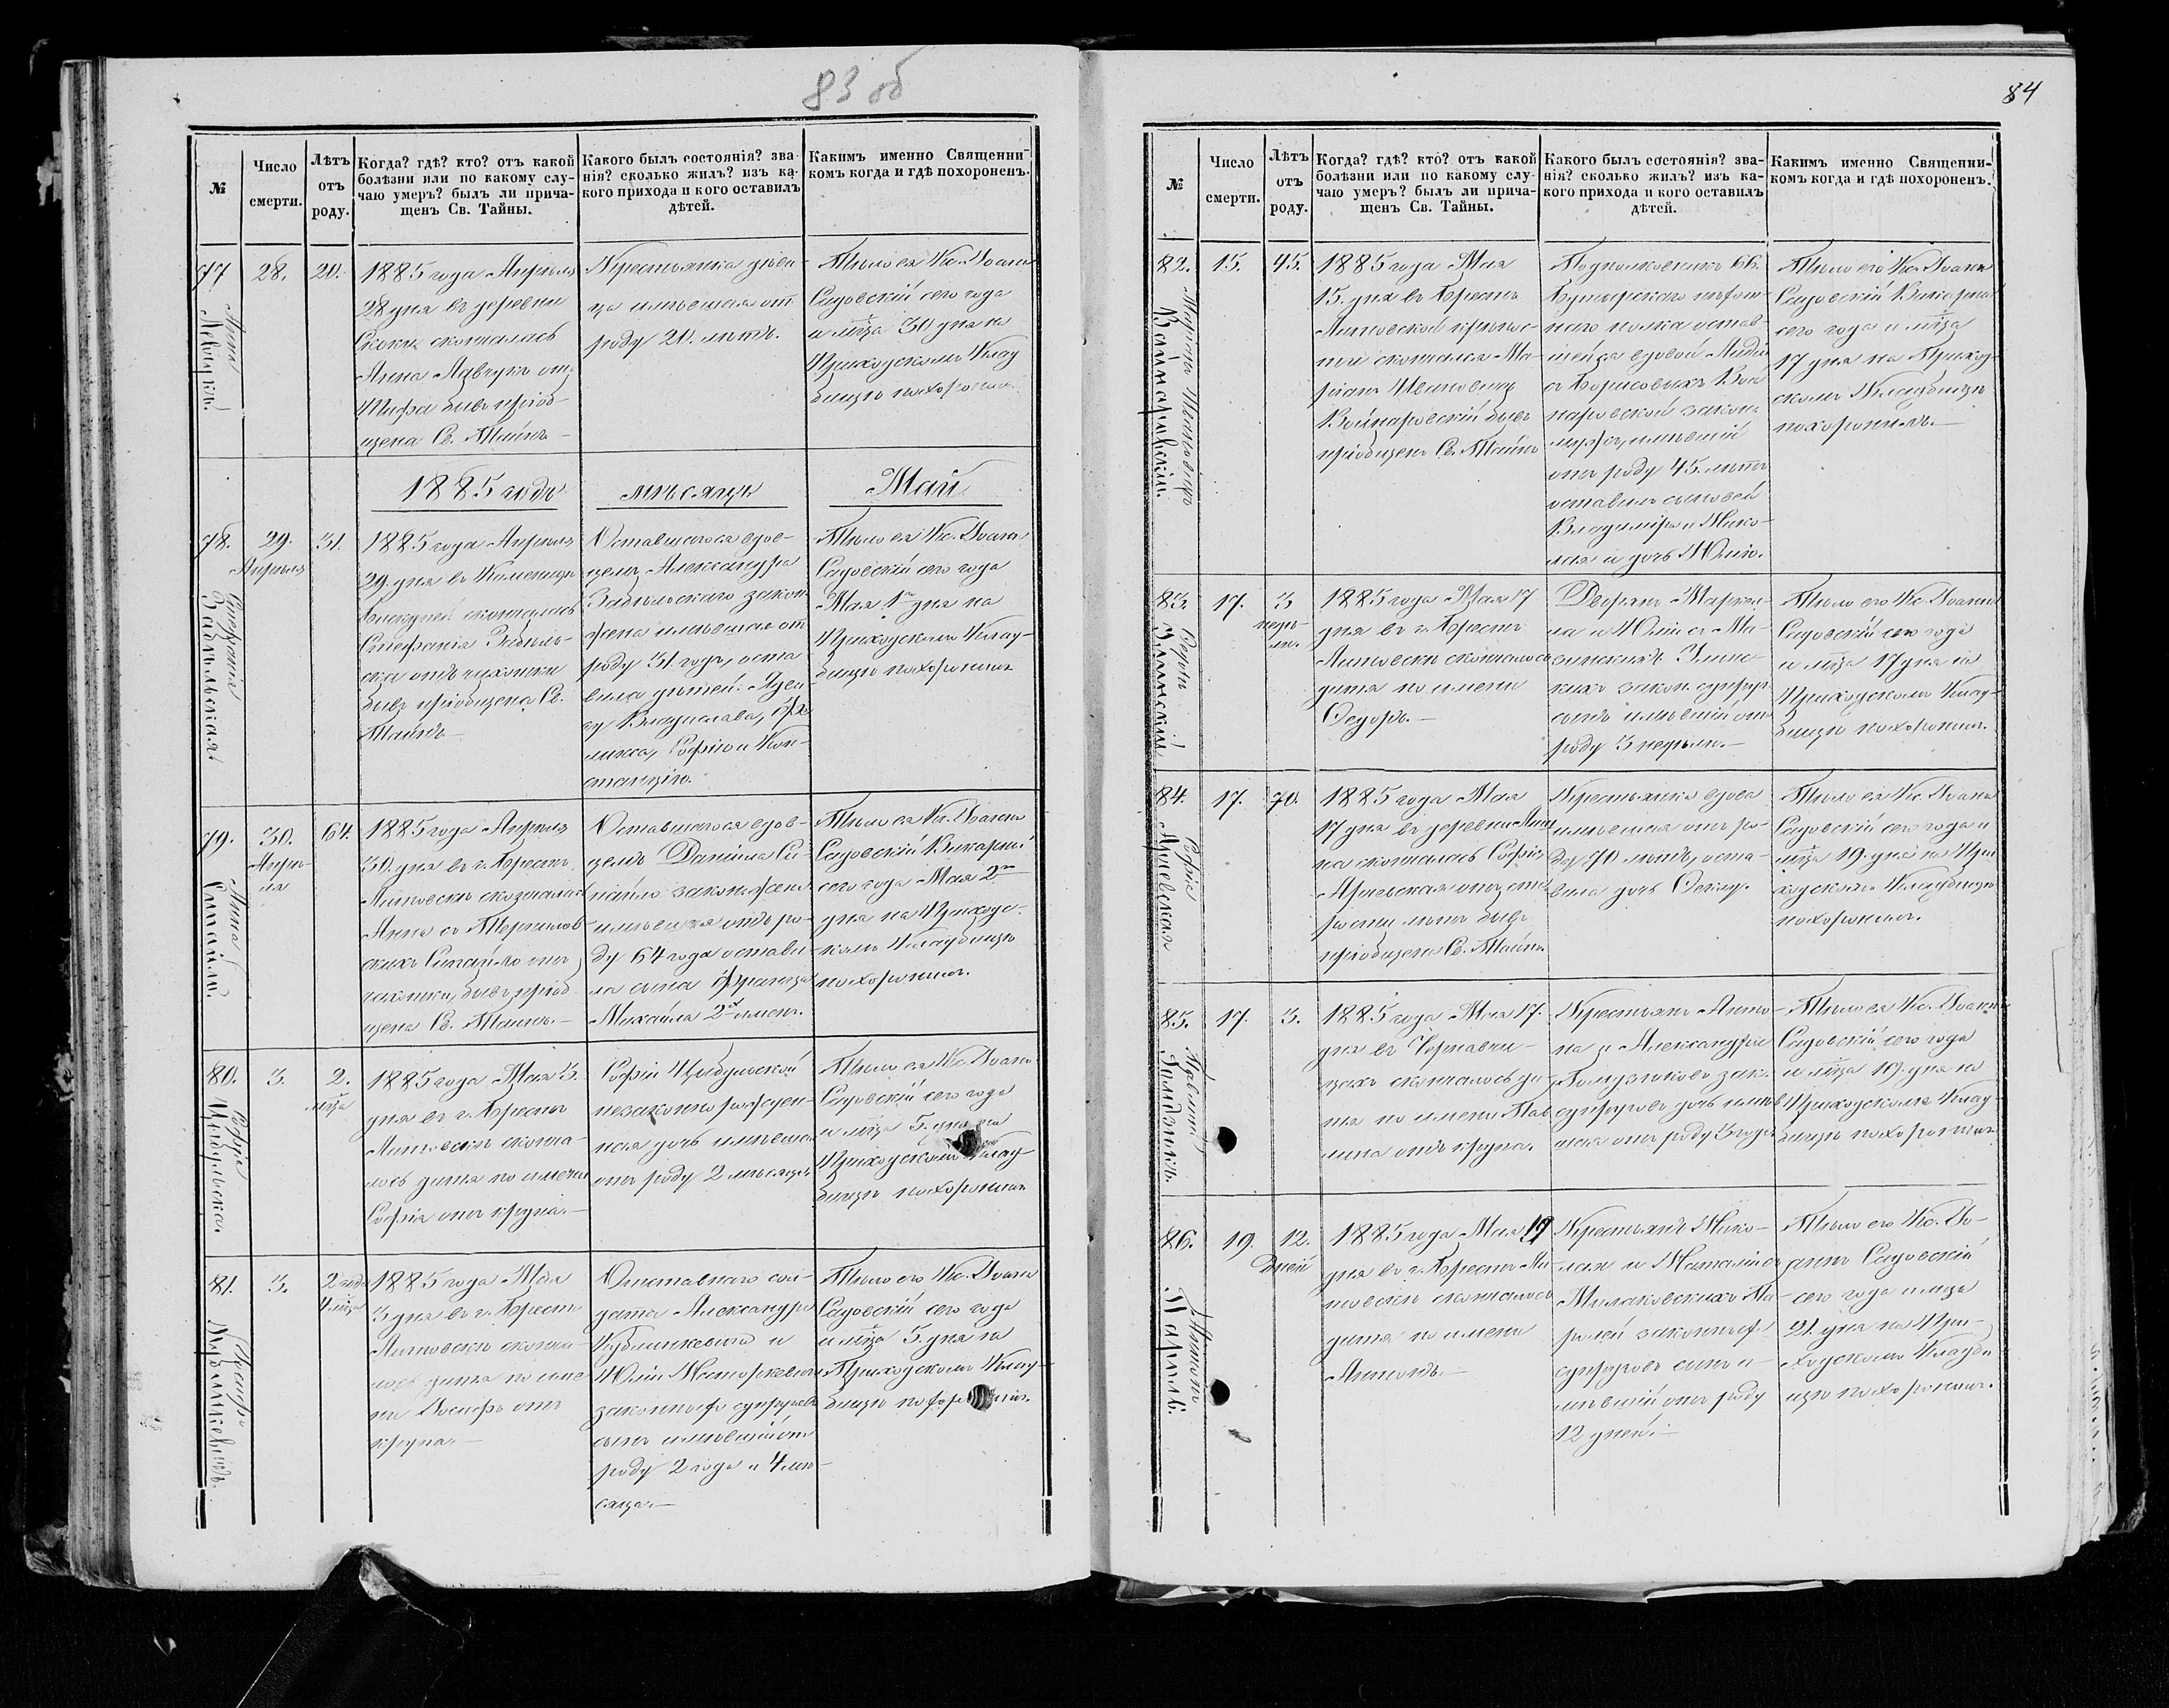 83 об
№
Число
смерти.
Лѣтъ
отъ
роду.
Когда? гдѣ? кто? отъ какой
болѣзни или по какому слу-
чаю умеръ? былъ ли прича-
щенъ Св. Тайны.
Какого былъ состоянія? зва-
нія? сколько жилъ? изъ ка-
кого прихода и кого оставилъ
дѣтей.
Какимъ именно Священни-
комъ когда и гдѣ похороненъ.
77
Анна
28.
20.
1885 года Апрѣля
28 дня въ деревни
Скоки скончалась
Анна Лавчукъ отъ
Тифа бывъ пріоб-
щена Св. Тайнъ
Крестьянка дѣви-
ца имѣвшая отъ
роду 20. лѣтъ.
Тѣло ея Кс. Іоаннъ
Садовскій сего года
и мѣца 30 дня на
Приходскомъ Клад
бищѣ похоронилъ
1885 годъ
мѣсяцъ
Май
78.
Стефанія
Забѣльская
29.
Апрѣля
31.
1885 года Апрѣля
29. дня въ Каменицѣ
скончалась
Стефанія Забѣль-
ска отъ чахотки
бывъ пріобщена Св.
Тайнъ
Оставшагося вдов-
цемъ Александра
Забѣльскаго закон.
жена имѣвшая отъ
роду 31. годъ, оста
вила дѣтей:
Владислава,
Софію и Кон-
станцію.
Тѣло ея Кс. Іоаннъ
Садовскій сего года
Мая 1го дня на
Приходскомъ Клад-
бищѣ похоронилъ
79.
Анна
Синайло.
30.
Апрѣ-
ля
64.
1885 года Апрѣля
30. дня въ г. Брестѣ
Литовскѣ скончалась
Анна съ
скихъ Синайло отъ
чахотки, бывъ пріоб
щена Св. Тайнъ.
Оставшагося вдов-
цемъ Даніила Си-
найло закон. жена
имѣвшая отъ ро-
ду 64 года остави-
ла сына Франца
Михаила 2хъ именъ.
Тѣло ея Кс. Іоаннъ
Садовскій Викарный
сего года Мая 2го
дня на Приходс-
комъ Кладбищѣ
похоронилъ.
80.
Софія
Цыбульска.
3.
2.
мѣца
1885 года Мая 3.
дня въ г. Брестѣ
Литовскѣ сконча-
лось дитя по имени
Софія отъ крупа.
Софіи Цыбульской
незаконнорожден-
ная дочь имѣвшая
отъ роду 2 мѣсяца
Тѣло ея Кс. Іоаннъ
Садовскій сего года
и мѣца 5. дня на
Приходскомъ Клад-
бищѣ похоронилъ
81.
Іосифъ
3.
2 года
4 мѣца
1885 года Мая
3 дня въ г. Брестѣ
Литовскѣ сконча-
лось дитя по име
ни Іосифъ отъ
крупа.
Отставного сол-
дата Александра
и
Юліи
законныхъ супруговъ
сынъ имѣвшій отъ
роду 2 года и 4 мѣ-
сяца.
Тѣло его Кс. Іоаннъ
Садовскій сего года
и мѣца 5. дня на
Приходскомъ Клад-
бищѣ похоронилъ.
84
№
Число
смерти.
Лѣтъ
отъ
роду.
Когда? гдѣ? кто? отъ какой
болѣзни или по какому слу-
чаю умеръ? былъ ли прича-
щенъ Св. Тайны.
Какого былъ состоянія? зва-
нія? сколько жилъ? изъ ка-
кого прихода и кого оставилъ
дѣтей.
Какимъ именно Священни-
комъ когда и гдѣ похороненъ.
82.
15.
45.
1885 года Мая
15. дня въ Брестъ
Литовской крѣпос-
ти скончался Ма-
ріанъ Ивановичъ
Войнаровскій бывъ
пріобщенъ Св. Тайнъ
Подполковникъ 66.
Бутырскаго пѣхот-
наго полка остав-
шейся вдовой Лидіи
съ Борисовыхъ Вой
наровской закон.
мужъ, имѣвшій
отъ роду 45. лѣтъ
оставилъ сыновей
Владиміра и Нико-
лая и дочь Юлію.
Тѣло его Кс. Іоаннъ
Садовскій Викарный
сего года и мѣца
17 дня на Приход-
скомъ Кладбищѣ
похоронилъ.
83.
17.
3
недѣ-
ли.
1885 года Мая 17
дня въ г. Брестѣ
Литовскѣ скончалось
дитя по имени
Ѳедоръ.
Дворянъ
и Юліи съ
закон. супруг.
сынъ имѣвшій отъ
роду 3 недѣли.
Тѣло его Кс. Іоаннъ
Садовскій сего года
и мѣца 17 дня на
Приходскомъ Клад-
бищѣ похоронилъ.
84.
Софія
17.
70.
1885 года Мая
17 дня въ деревни
скончалась Софія
отъ ста
рости лѣтъ бывъ
пріобщена Св. Тайнъ
Крестьянка вдова
имѣвшая отъ ро-
ду 70 лѣтъ, оста-
вила дочь Ѳеклу.
Тѣло ея Кс. Іоаннъ
Садовскій сего года и
мѣца 19. дня на При
ходскомъ Кладбищѣ
похоронилъ.
85.
17.
3.
1885 года Мая 17.
дня въ Чернавчи-
цахъ скончалось ди-
тя по имени Пав
лина отъ крупа.
Крестьянъ Анто-
на и Александры
зак.
супруговъ дочь имѣв
шая отъ роду 3 года
Тѣло ея Кс. Іоаннъ
Садовскій сего года
и мѣца 19. дня на
Приходскомъ Клад-
бищѣ похоронилъ.
86.
Антонъ
19.
12.
дней
1885 года Мая 19
дня въ г. Брестѣ Ли-
товскѣ скончалось
дитя по имени
Антонъ.
Крестьянъ Нико-
лая и Наталіи съ
законныхъ
супруговъ сынъ и-
мѣвшій отъ роду
12 дней.
Тѣло его Кс. Іо-
аннъ Садовскій
сего года и мѣца
21. дня на При-
ходскомъ Кладби
щѣ похоронилъ.